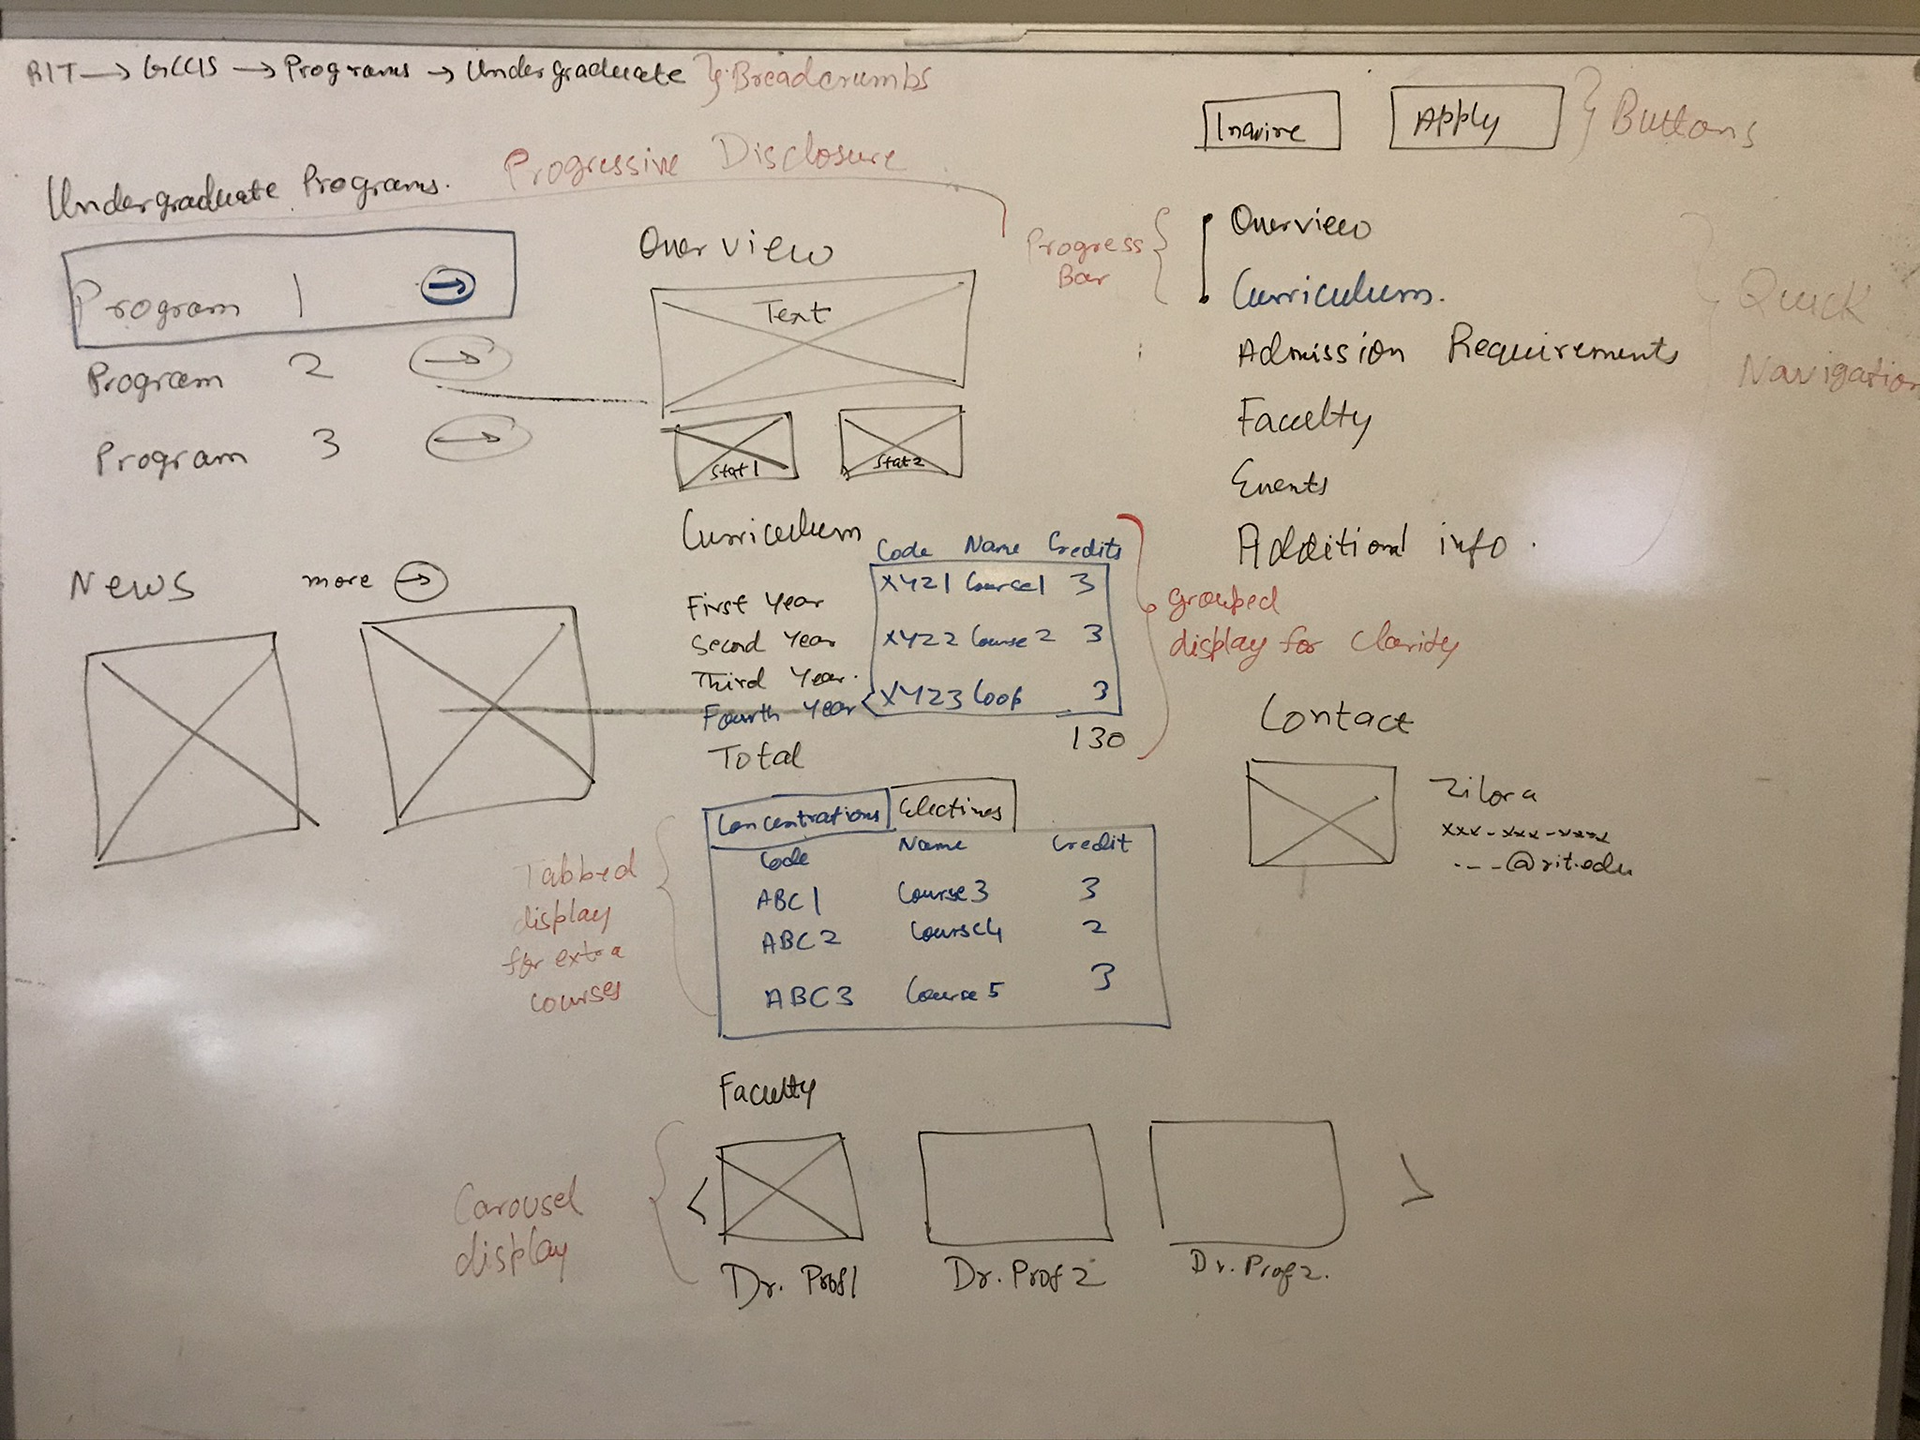 RIT → GCCIS → Programs → Undergraduate } Breadcrumbs
Inquire
Apply
Buttons
Undergraduate Programs.
Progressive Disclosure
Program 1 →
Program 2 →
Program 3 →
News more →
Overview
Text
Stat 1
Stat 2
Curriculum
Code Name Credits
XYZ1 Course1 3
XYZ2 Course 2 3
XYZ3 Coop 3
First Year
Second Year
Third Year.
Fourth Year
Total 130
grouped
display for Clarity
Concentrations Electives
Code Name Credit
ABC1 Course3 3
ABC2 Course4 2
ABC3 Course5 3
Tabbed
display
for extra
courses
Faculty
<
>
Dr. Prof1
Dr. Prof 2
Dr. Prof 2.
Carousel
display
Progress
Bar
Overview
Curriculum.
Admission Requirements
Faculty
Events
Additional info.
Quick
Navigation
Contact
Zilora
xxx-xxx-xxxx
---@rit.edu